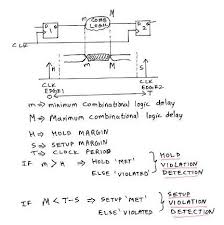 m M
COMB
LOGIC
1 2
CLK
m M
H S
CLK CLK
EDGE1 EDGE2
O T
m => minimum combinational logic delay
M => Maximum combinational logic delay
H => HOLD MARGIN
S => SETUP MARGIN
T => CLOCK PERIOD
IF m > H => HOLD 'MET' HOLD
ELSE 'VIOLATED' VIOLATION
DETECTION
IF M < T-S => SETUP 'MET' SETUP
ELSE 'VIOLATED' VIOLATION
DETECTION